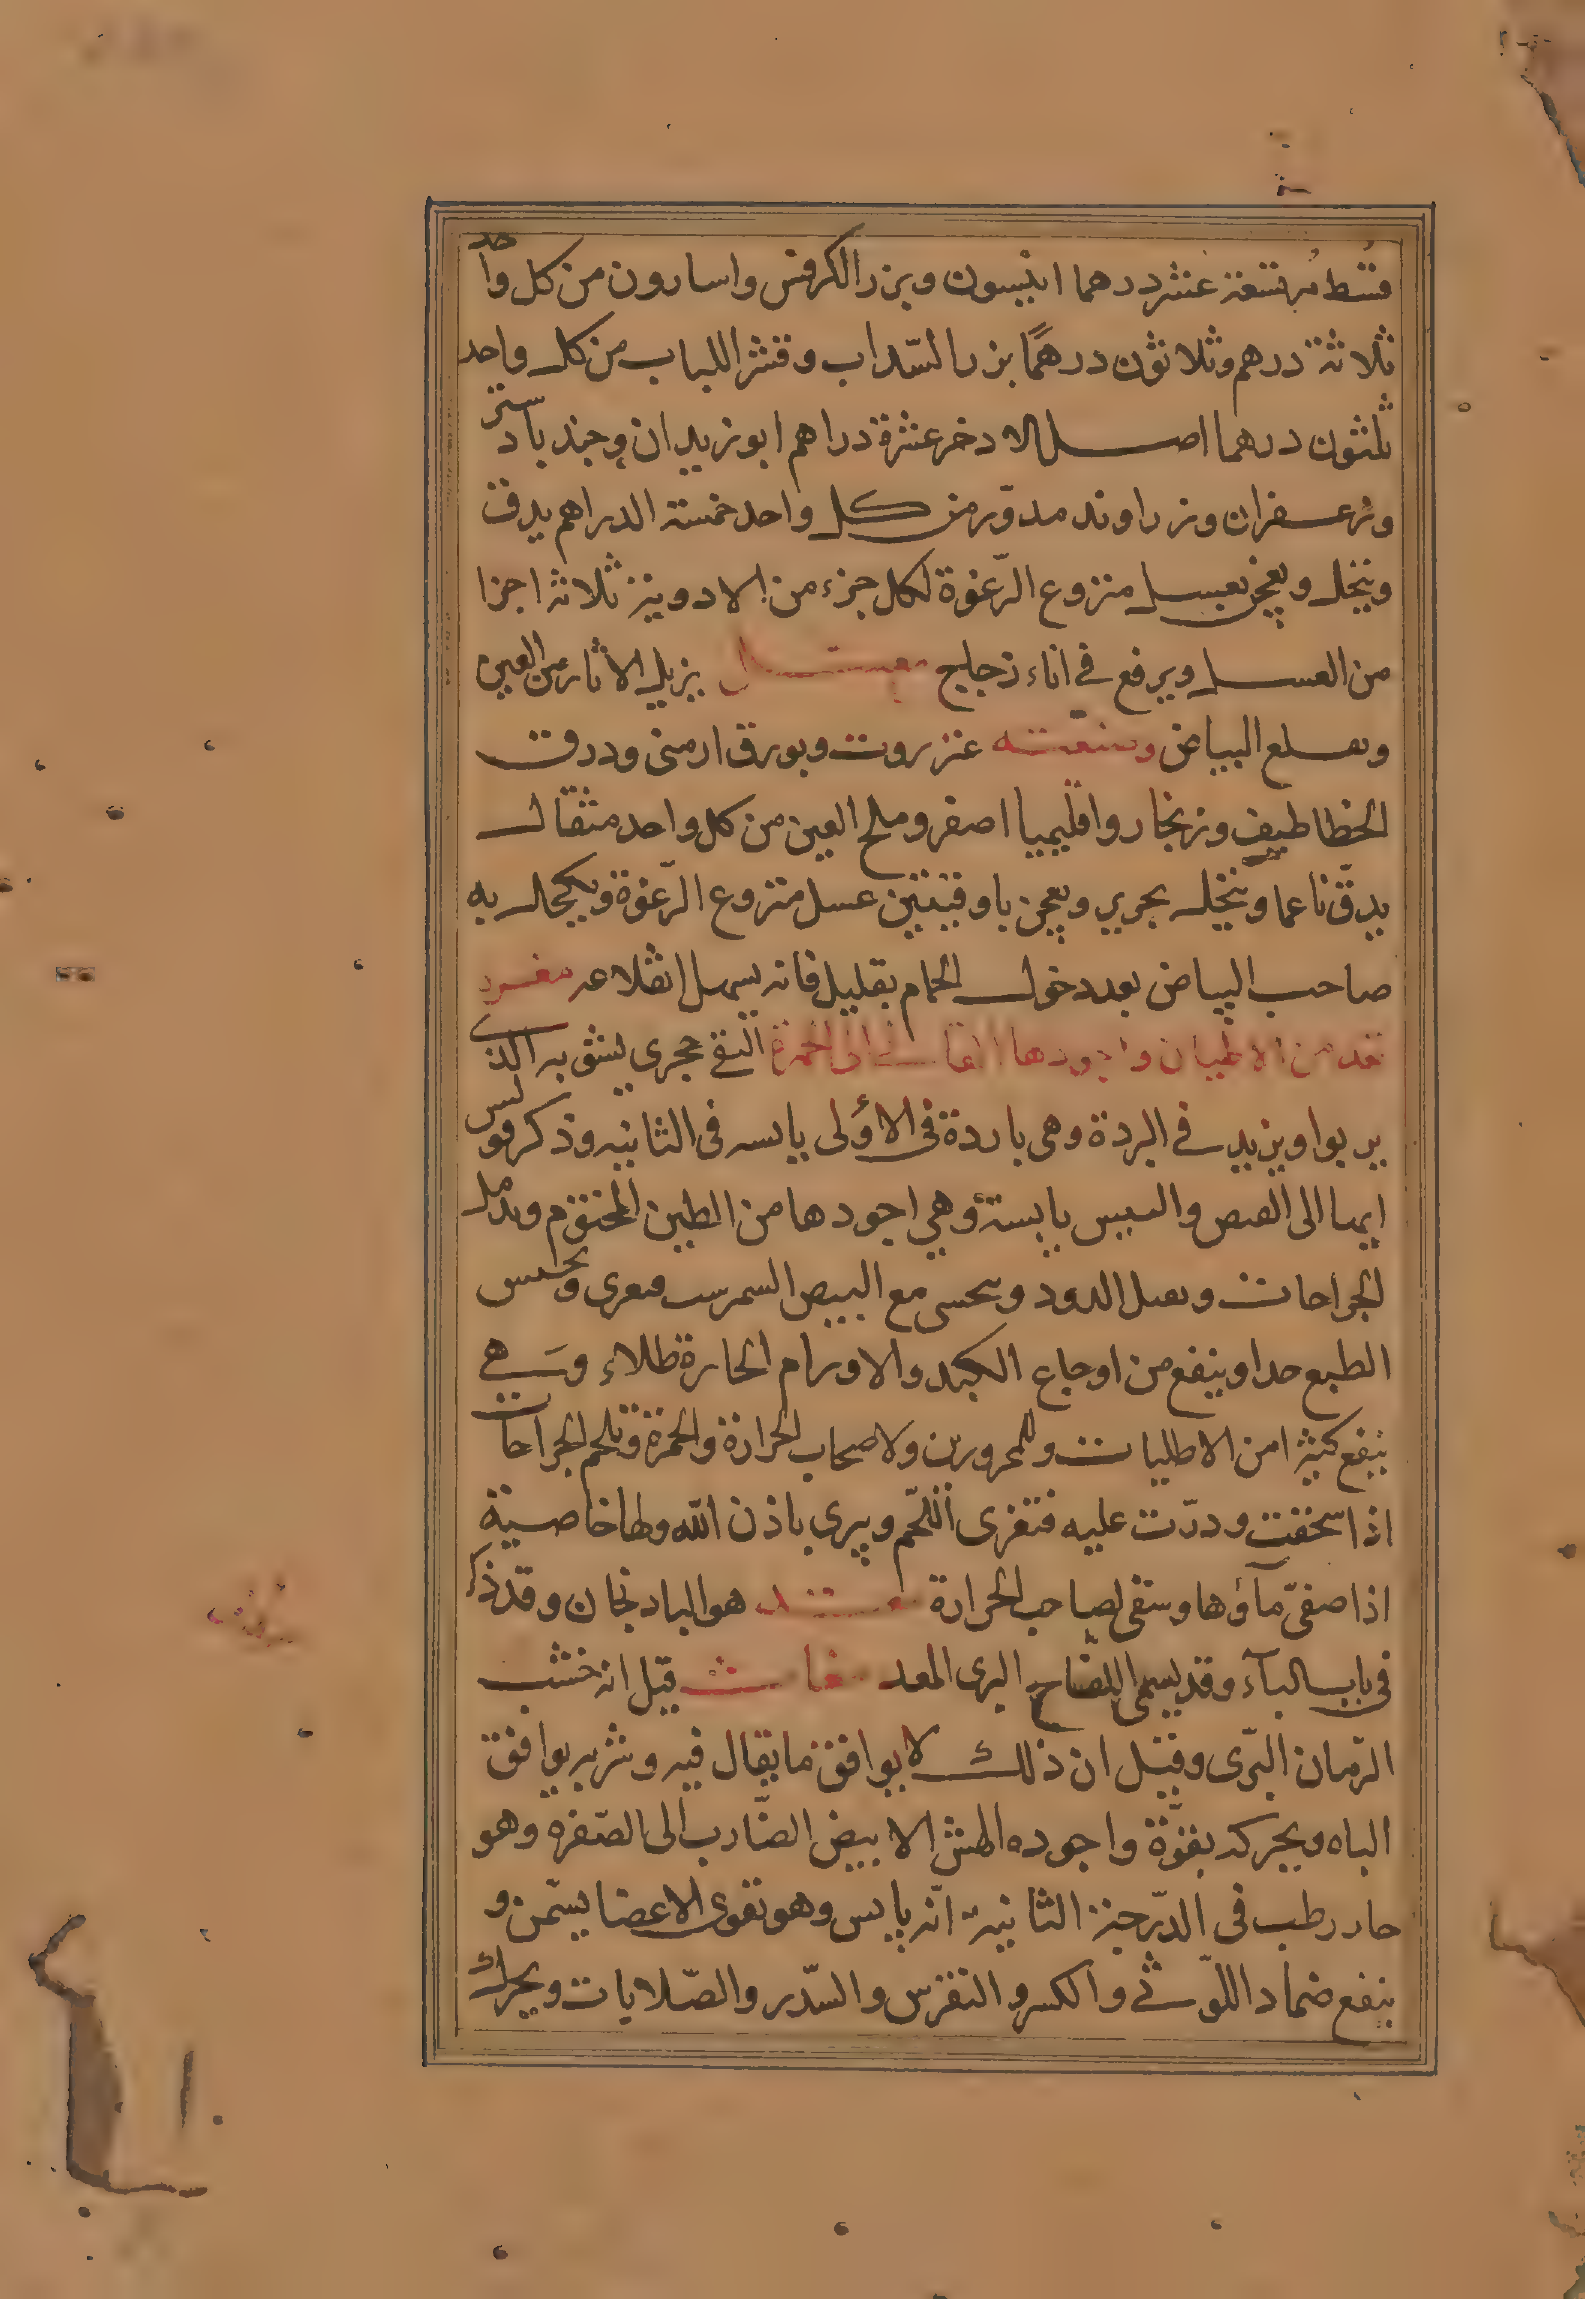 قسط مر تسعة عشر درهما انيسون وبزر الكرفس واسارون من كل واحد
ثلاثة درهم وثلاثون درهمًا بزر السّداب وقشر اللباب من كل واحد
ثلثون درهما اصل الادخر عشرة دراهم ابو زيدان وجند بادستر
وزعفران وزراوند مدوّر من كل واحد خمسة الدراهم يدق
وينخل ويعجن بعسل منزوع الرّغوة لكل جزء من الادوية ثلاثة اجزا
من العسل ويرفع في اناء زجاج يزيل الاثار من العين
وىعلع البياض وصنعته عنزروت وبورق ارمنى ودرق
الخطاطيف وزنجار واقليميا اصفر وملح العين من كل واحد مثقال
يدقّ ناعما وينخل بحرير ويعجن باوقيتين عسل منزوع الرّغوة ويكحال به
صاحب البياض بعد دخول الحمام بقليل فانه يسهل انقلاعه
من الاطيان واجودها الى الحمرة النقى حجرى يشق به الذى
يربوا ويزيد فى البردة وهى باردة فى الاؤلى يابسه فى الثانيه وذكر قولس
ايما الى القبض واليبس يابسة وهي اجودها من الطين المختوم ويدمل
الجراحات وىقىل الدود وىىحسى مع البيض السمرست ويحبس
الطبع جدا وينفع من اوجاع الكبد والاورام الحارة طلاء وهي
ينفع كثيرا من الاطليات وللمحرورين ولاصحاب الحرارة والحمرة وتلحم الجراحات
اذا سحقت ودرّت عليه فتغرى اللّحم ويبرى باذن الله ولها خاصية
اذا صفىّ مآؤها وسقى لصاحب الحرارة هو البادنجان وقد ذكر
فى باب البآء وقد يسمى اللفّاح البرى المعد مغاث قيل انه خشب
الرّمان البّرى وقيل ان ذلك لا يوافق ما يقال فيه وشربه يوافق
الباه ويحركه بقوّة واجوده الهش الابيض الضّارب الى الصّفره وهو
حار رطب فى الدّرجة الثانية انّه يابس وهو تقوى الاعضا يسّمن و
ينفع ضماد اللوّثي والكسر والنقرس والسّدر والصّلايات ويحرك